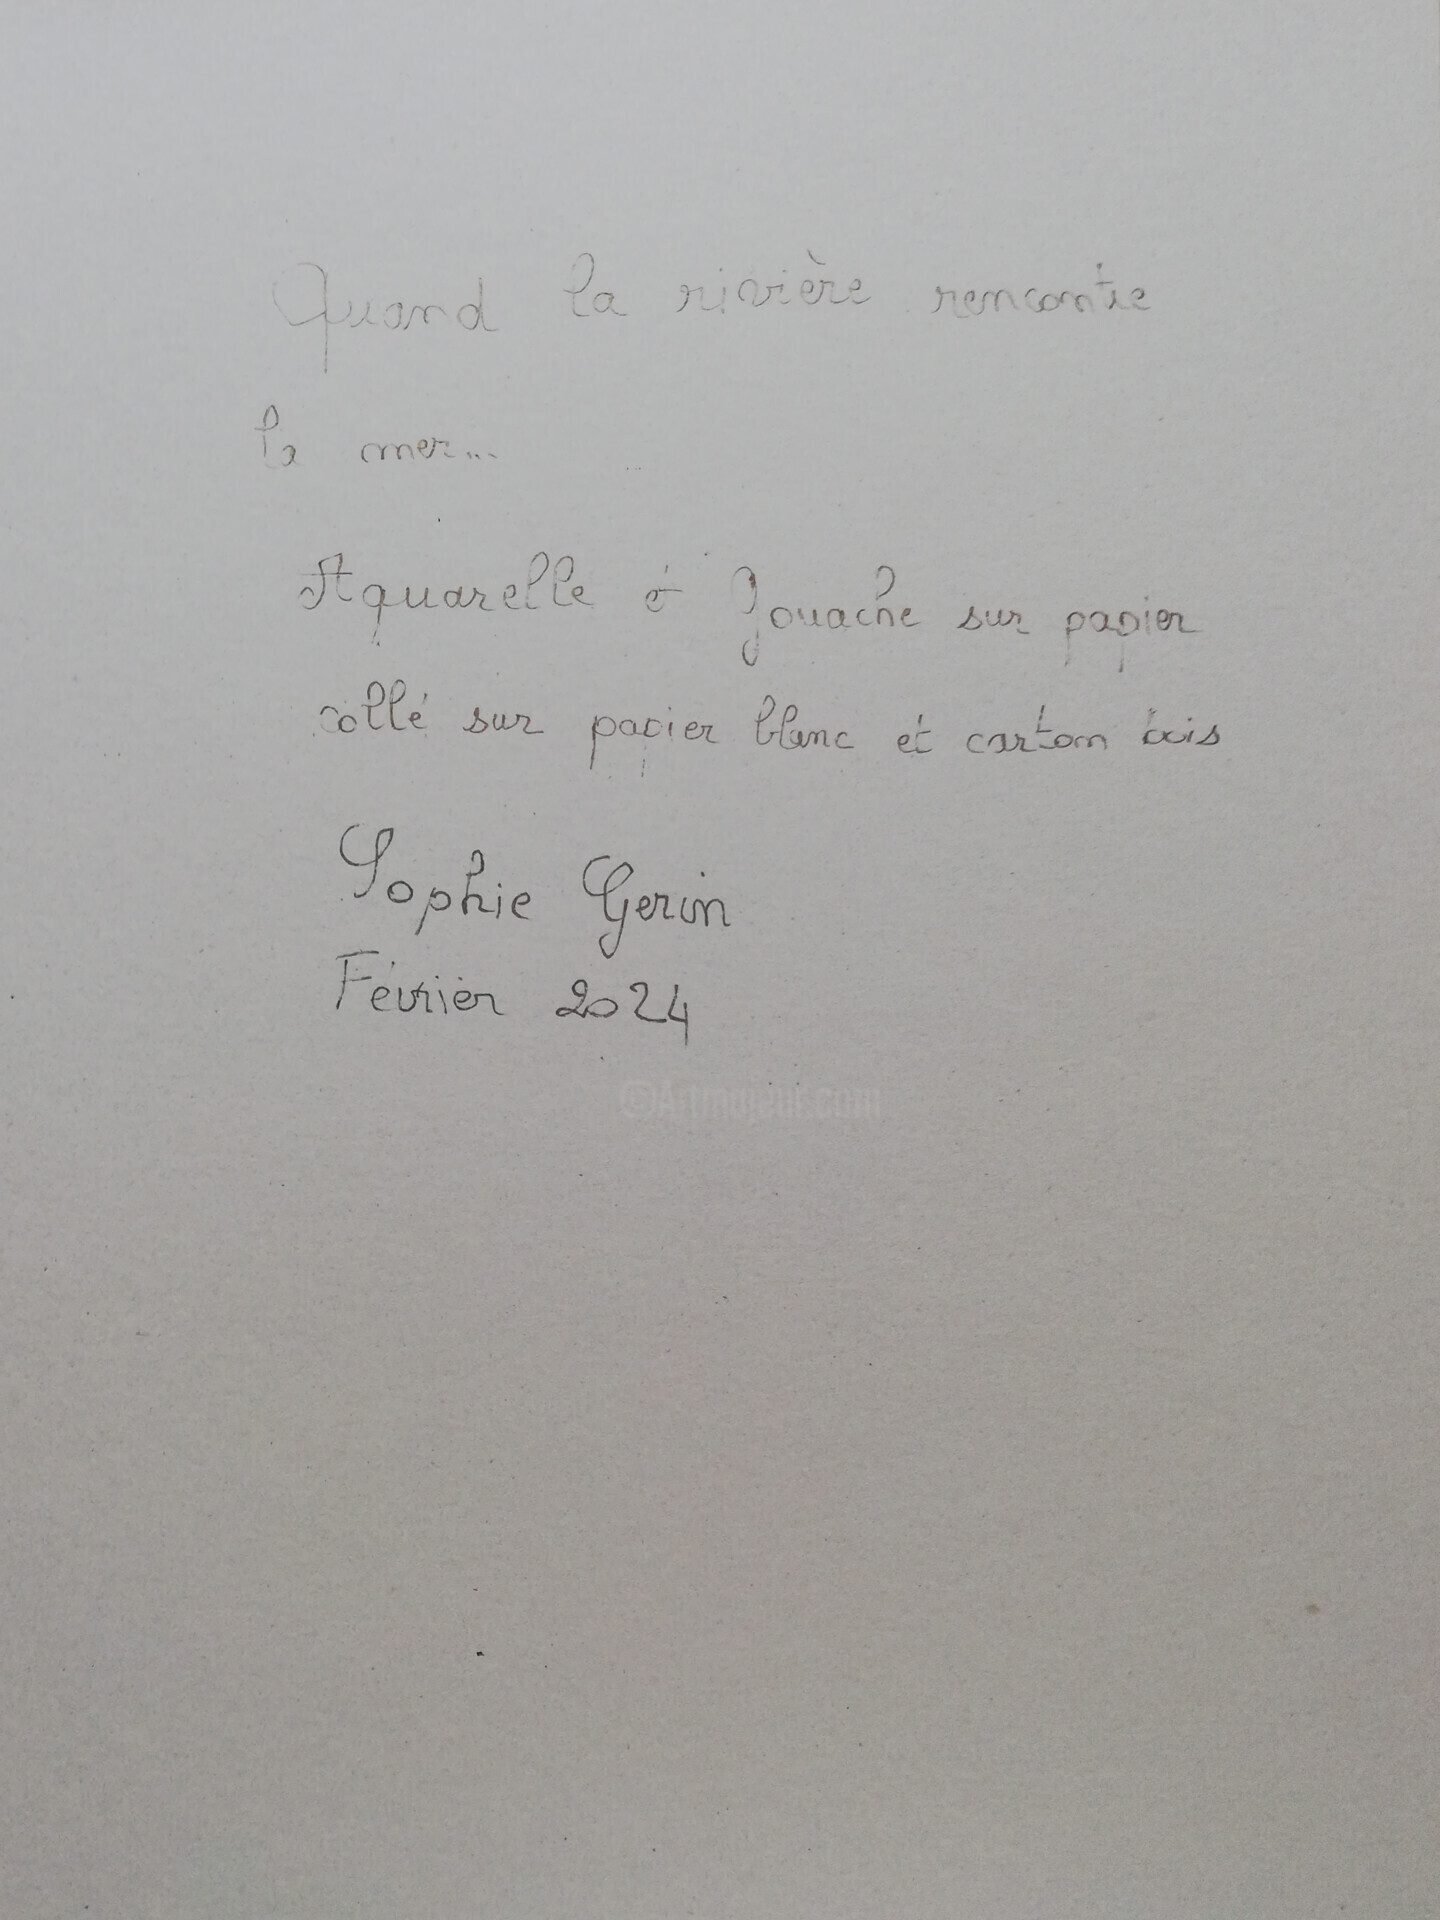 Quand la rivière rencontre
la mer...
Aquarelle et Gouache sur papier
collé sur papier blanc et carton bois
Sophie Gerin
Février 2024
©Artmajeur.com